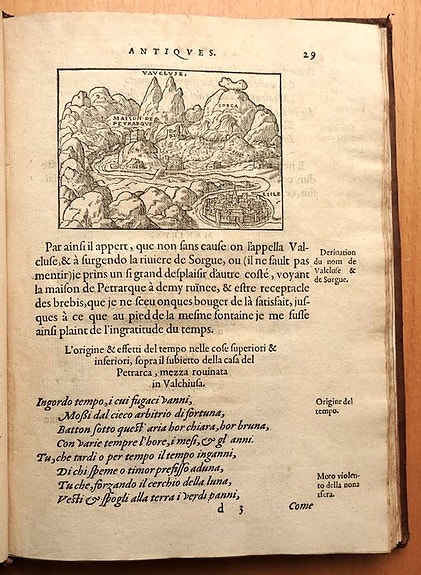 ANTIQVES.
29
VAVCLVSE.
SORGA
MAISON DE
PETRARQVE
LISLE
Par ainsi il appert, que non sans cause on l'appella Val-
cluse,& à surgendo la riuiere de Sorgue, ou (il ne fault pas
mentir) ie prins un si grand desplaisir d'autre costé, voyant
la maison de Petrarque à demy ruïnee, & estre receptacle
des brebis, que ie ne sceu onques bouger de là satisfait, jus-
ques à ce que au pied de la mesme fontaine je me fusse
ainsi plaint de l'ingratitude du temps.
Deriuation
du nom de
Valcluse &
de Sorgue.
L'origine & effetti del tempo nelle cose superiori &
inferiori, sopra il subietto della casa del
Petrarca, mezza rouinata
in Valchiusa.
Ingordo tempo, i cui fugaci vanni,
Moßi dal cieco arbitrio di fortuna,
Batton sotto quest' aria hor chiara, hor bruna,
Con varie tempre l'hore, i mesi, & gl' anni.
Tu, che tardi o per tempo il tempo inganni,
Di chi speme o timor prefisso aduna,
Tu che, forzando il cerchio della luna,
Vesti & spogli alla terra i verdi panni,
Origine del
tempo.
Moto violen-
to della nona
sfera.
d 3
Come